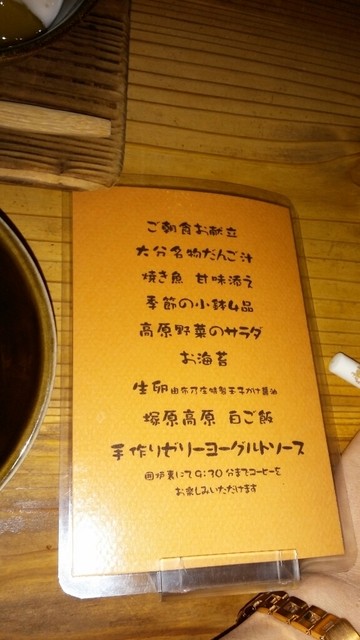 ご朝食お献立
大分名物だんご汁
焼き魚 甘味添え
季節の小鉢4品
高原野菜のサラダ
お海苔
生卵 由布院庄特製玉子かけ醤油
塚原高原 白ご飯
手作りゼリーヨーグルトソース
囲炉裏にて9:30分までコーヒーを
お楽しみいただけます